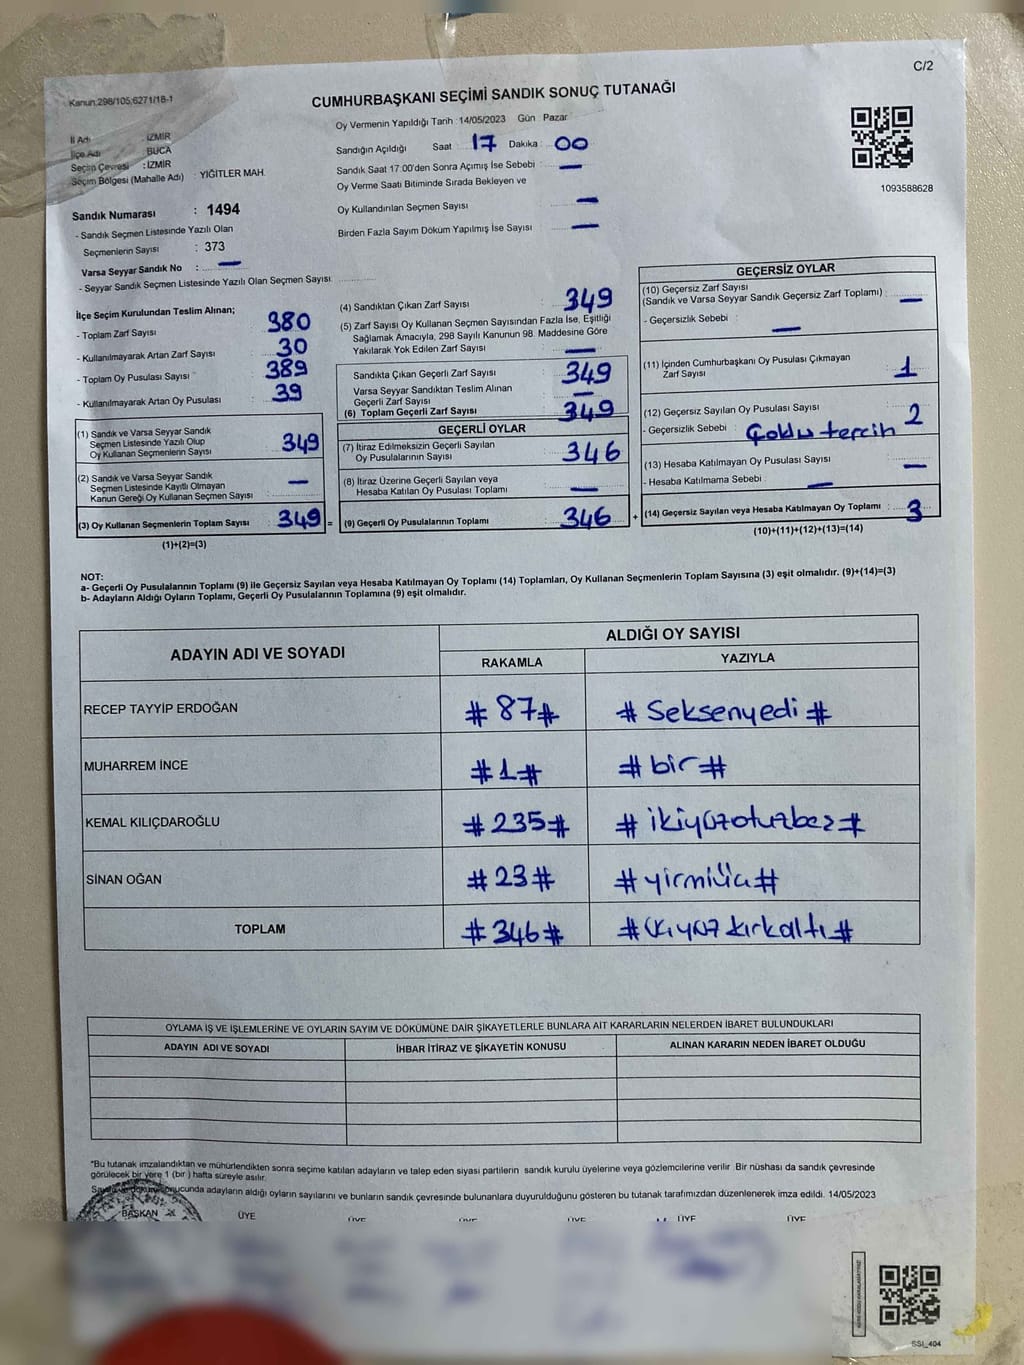 C/2
Kanun:298/105,6271/18-1
CUMHURBAŞKANI SEÇİMİ SANDIK SONUÇ TUTANAĞI
Oy Vermenin Yapıldığı Tarih :14/05/2023 Gün : Pazar
İl Adı : İZMİR
İlçe Adı : BUCA
Seçim Çevresi : İZMİR
Seçim Bölgesi (Mahalle Adı) : YİĞİTLER MAH.
Sandığın Açıldığı Saat : 17 Dakika : 00
Sandık Saat 17:00'den Sonra Açımış İse Sebebi : —
Oy Verme Saati Bitiminde Sırada Bekleyen ve
Oy Kullandırılan Seçmen Sayısı —
Birden Fazla Sayım Döküm Yapılmış İse Sayısı : —
1093588628
Sandık Numarası : 1494
- Sandık Seçmen Listesinde Yazılı Olan
Seçmenlerin Sayısı : 373
Varsa Seyyar Sandık No : —
- Seyyar Sandık Seçmen Listesinde Yazılı Olan Seçmen Sayısı: ............
İlçe Seçim Kurulundan Teslim Alınan;
- Toplam Zarf Sayısı : 380
- Kullanılmayarak Artan Zarf Sayısı : 30
- Toplam Oy Pusulası Sayısı : 389
- Kullanılmayarak Artan Oy Pusulası : 39
(1) Sandık ve Varsa Seyyar Sandık
Seçmen Listesinde Yazılı Olup
Oy Kullanan Seçmenlerin Sayısı : 349
(2) Sandık ve Varsa Seyyar Sandık
Seçmen Listesinde Kayıtlı Olmayan
Kanun Gereği Oy Kullanan Seçmen Sayısı : —
(3) Oy Kullanan Seçmenlerin Toplam Sayısı : 349 =
(1)+(2)=(3)
(4) Sandıktan Çıkan Zarf Sayısı : 349
(5) Zarf Sayısı Oy Kullanan Seçmen Sayısından Fazla İse, Eşitliği
Sağlamak Amacıyla, 298 Sayılı Kanunun 98. Maddesine Göre
Yakılarak Yok Edilen Zarf Sayısı : —
Sandıkta Çıkan Geçerli Zarf Sayısı : 349
Varsa Seyyar Sandıktan Teslim Alınan
Geçerli Zarf Sayısı : —
(6) Toplam Geçerli Zarf Sayısı : 349
GEÇERLİ OYLAR
(7) İtiraz Edilmeksizin Geçerli Sayılan
Oy Pusulalarının Sayısı : 346
(8) İtiraz Üzerine Geçerli Sayılan veya
Hesaba Katılan Oy Pusulası Toplamı : —
(9) Geçerli Oy Pusulalarının Toplamı : 346 +
GEÇERSİZ OYLAR
(10) Geçersiz Zarf Sayısı
(Sandık ve Varsa Seyyar Sandık Geçersiz Zarf Toplamı) : —
- Geçersizlik Sebebi : —
(11) İçinden Cumhurbaşkanı Oy Pusulası Çıkmayan
Zarf Sayısı : 1
(12) Geçersiz Sayılan Oy Pusulası Sayısı : 2
- Geçersizlik Sebebi : Çoklu tercih
(13) Hesaba Katılmayan Oy Pusulası Sayısı : —
- Hesaba Katılmama Sebebi : —
(14) Geçersiz Sayılan veya Hesaba Katılmayan Oy Toplamı : 3
(10)+(11)+(12)+(13)=(14)
NOT:
a- Geçerli Oy Pusulalarının Toplamı (9) ile Geçersiz Sayılan veya Hesaba Katılmayan Oy Toplamı (14) Toplamları, Oy Kullanan Seçmenlerin Toplam Sayısına (3) eşit olmalıdır. (9)+(14)=(3)
b- Adayların Aldığı Oyların Toplamı, Geçerli Oy Pusulalarının Toplamına (9) eşit olmalıdır.
ADAYIN ADI VE SOYADI ALDIĞI OY SAYISI
RAKAMLA YAZIYLA
RECEP TAYYİP ERDOĞAN # 87# # Seksenyedi #
MUHARREM İNCE #1# # bir #
KEMAL KILIÇDAROĞLU # 235# # ikiyüzotuzbeş #
SİNAN OĞAN # 23 # # yirmiüç #
TOPLAM # 346# # üçyüz kırkaltı #
OYLAMA İŞ VE İŞLEMLERİNE VE OYLARIN SAYIM VE DÖKÜMÜNE DAİR ŞİKAYETLERLE BUNLARA AİT KARARLARIN NELERDEN İBARET BULUNDUKLARI
ADAYIN ADI VE SOYADI İHBAR İTİRAZ VE ŞİKAYETİN KONUSU ALINAN KARARIN NEDEN İBARET OLDUĞU
"Bu tutanak imzalandıktan ve mühürlendikten sonra seçime katılan adayların ve talep eden siyasi partilerin sandık kurulu üyelerine veya gözlemcilerine verilir. Bir nüshası da sandık çevresinde
görülecek bir yere 1 (bir ) hafta süreyle asılır.
Sayım ve döküm sonucunda adayların aldığı oyların sayılarını ve bunların sandık çevresinde bulunanlara duyurulduğunu gösteren bu tutanak tarafımızdan düzenlenerek imza edildi. 14/05/2023
BAŞKAN ÜYE ÜYE ÜYE ÜYE ÜYE ÜYE
SSİ_404